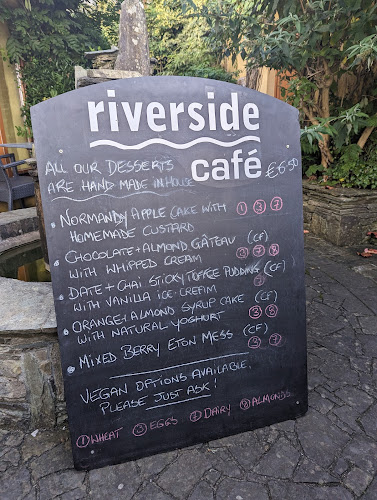 riverside
café
ALL OUR DESSERTS
ARE HAND MADE IN HOUSE
£6.50
NORMANDY APPLE CAKE WITH ① ③ ⑦
HOMEMADE CUSTARD
CHOCOLATE + ALMOND GÂTEAU (CF)
WITH WHIPPED CREAM ③ ⑦ ⑧
DATE + CHAI STICKY TOFFEE PUDDING (CF)
WITH VANILLA ICE-CREAM ③ ⑦
ORANGE + ALMOND SYRUP CAKE (CF)
WITH NATURAL YOGHURT ③ ⑧
MIXED BERRY ETON MESS (CF)
③ ⑦
VEGAN OPTIONS AVAILABLE.
PLEASE JUST ASK!
① WHEAT ③ EGGS ⑦ DAIRY ⑧ ALMONDS